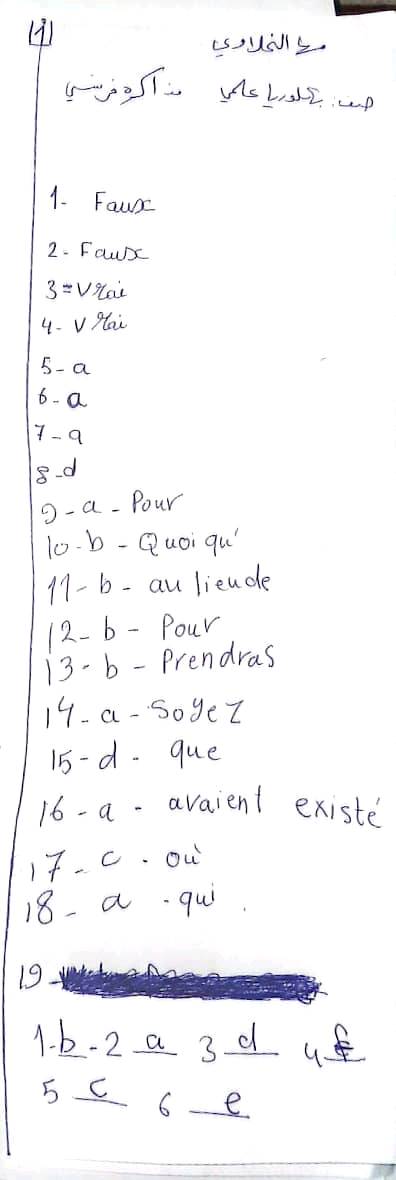 [1]
مع النحلاوي
صف: بكلوريا علمي مذاكرة فرنسي
1- Faux
2- Faux
3=Vrai
4- Vrai
5- a
6- a
7- a
8-d
9- a - Pour
10-b - Quoi qu'
11- b - au lieu de
12- b - Pour
13- b - Prendras
14- a - Soyez
15- d - que
16 - a - avaient existé
17- c - où
18- a - qui.
19
1-b-2 a 3 d 4 f
5 c 6 e